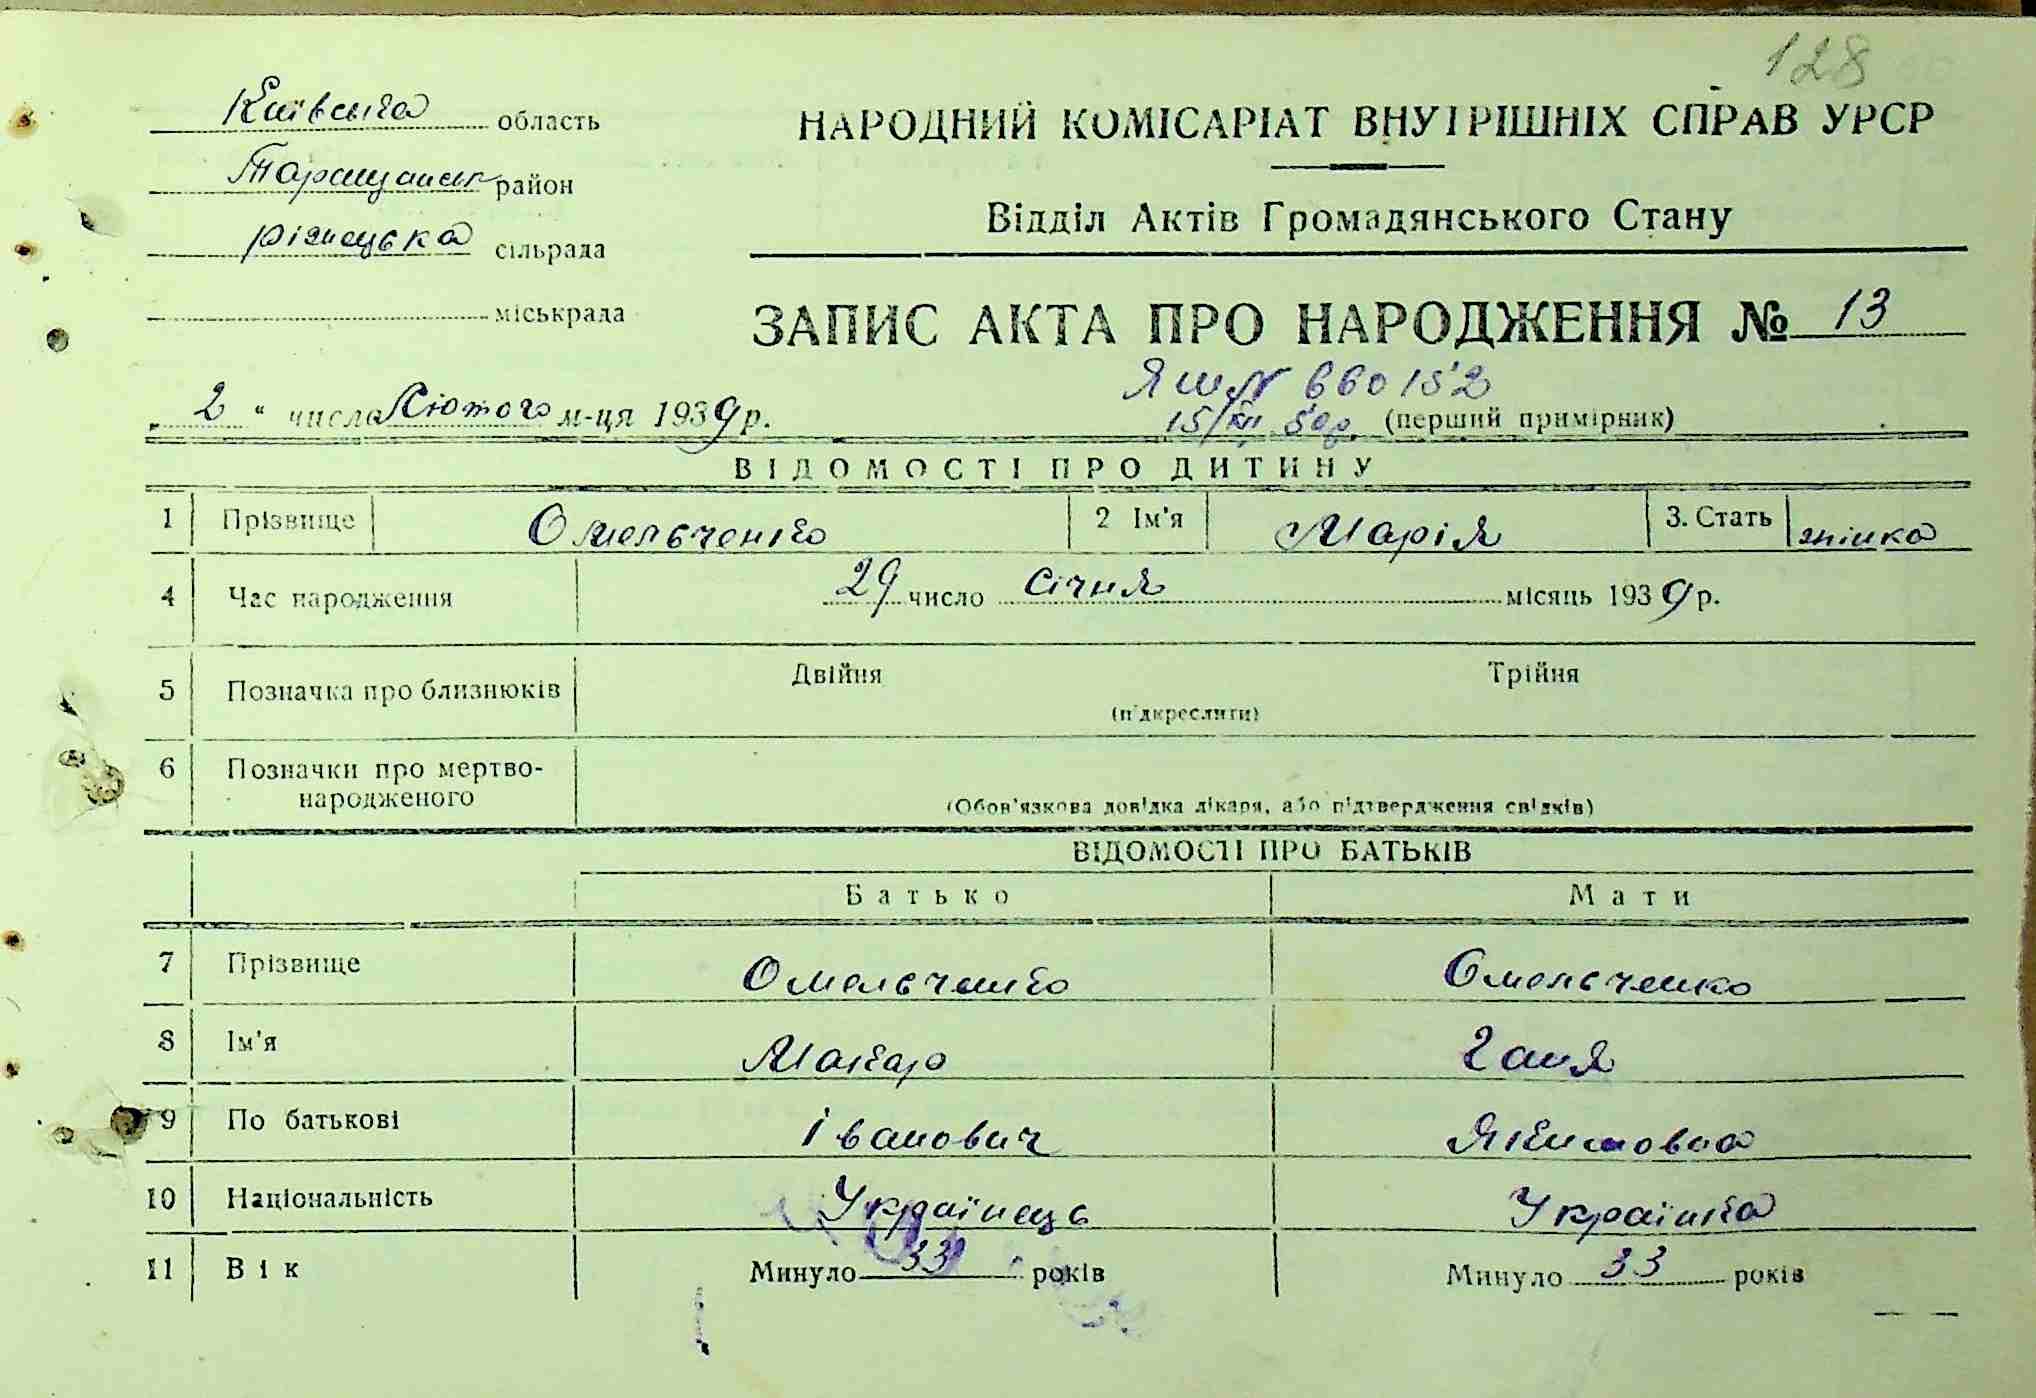 128
Київська область
НАРОДНИЙ КОМІСАРІАТ ВНУТРІШНІХ СПРАВ УРСР
Таращанськ район
Відділ Актів Громадянського Стану
сільрада
міськрада
ЗАПИС АКТА ПРО НАРОДЖЕННЯ № 13
660152
„ 2 “ числа Лютого м-ця 1939 р.
15/XII 50р. (перший примірник)
ВІДОМОСТІ ПРО ДИТИНУ
1 Прізвище Омельченко 2 Ім'я Марія 3. Стать жінка
4 Час народження 29 число січня місяць 1939 р.
5 Позначка про близнюків Двійня Трійня
(підкреслити)
6 Позначки про мертво-
народженого
(Обов'язкова довідка лікаря, або підтвердження свідків)
ВІДОМОСТІ ПРО БАТЬКІВ
Батько Мати
7 Прізвище Омельченко Омельченко
8 Ім'я Макар Ганя
9 По батькові Іванович Якимовна
10 Національність Українець Українка
11 Вік Минуло 33 років Минуло 33 років